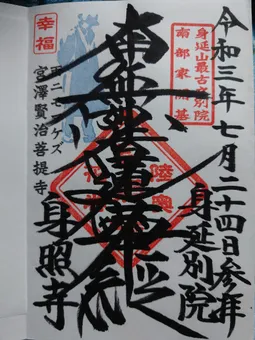 令和三年七月二十四日参拝
身延別院
身延山最古之別院
南部家開基
南無妙法蓮華経
陸奥
幸福
雨ニモマケズ
宮澤賢治菩提寺
身照寺